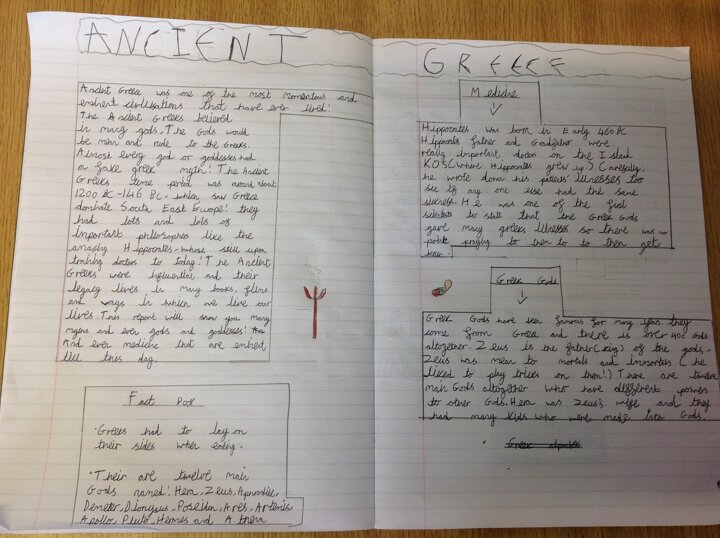 ANCIENT
Ancient Greece was one of the most momentous and
eminent civilisations that have ever lived!
The Ancient Greeks believed
in many gods. The Gods would
be mean and rude to the Greeks.
Almost every god or goddesses had
or fake greek myth! The Ancient
Greeks time period was around about
1200 BC - 146 BC - which saw Greece
dominate South East Europe! they
had lots and lots of
important philosophes like the
amazing Hippocrates - whose still upon
training doctors to today! The Ancient
Greeks were influential and their
legacy lives in many books, films
and ways in which we live our
lives This report will show you many
myths and even gods and goddesses!
And even medicine that are eminent,
till this day.
Fact Box
• Greeks had to lay on
their sides when eating.
• Their are twelve main
Gods named! Hera, Zeus, Aphrodite,
Demeter, Dionysus, Poseidon, Ares, Artemis
Apollo, Pluto, Hermes and Athena
GREECE
Medicine
Hippocrates was born in Early 460 BC
Hippocrats father and Grandfather were
really important doctors on the Island
KOS (where Hippocrates grew up) Carefully,
he wrote down his patients' illnesses too
see if any one else had the same
sickness. He was one of the first
scientists to state that the Greek Gods
gave many greeks illnesses so there was no
point praying to them to to them get
Greek Gods
Greek Gods have been famous for many years. they
come from Greece and there is over 400 Gods
altogether. Zeus is the father (king) of the gods.
Zeus was mean to mortals and immortals (he
liked to play tricks on them!) There are twelve
main Gods altogether who have different powers
to other Gods. Hera was Zeus's wife and they
had many kids who were made into Gods.
• Greek alphabet